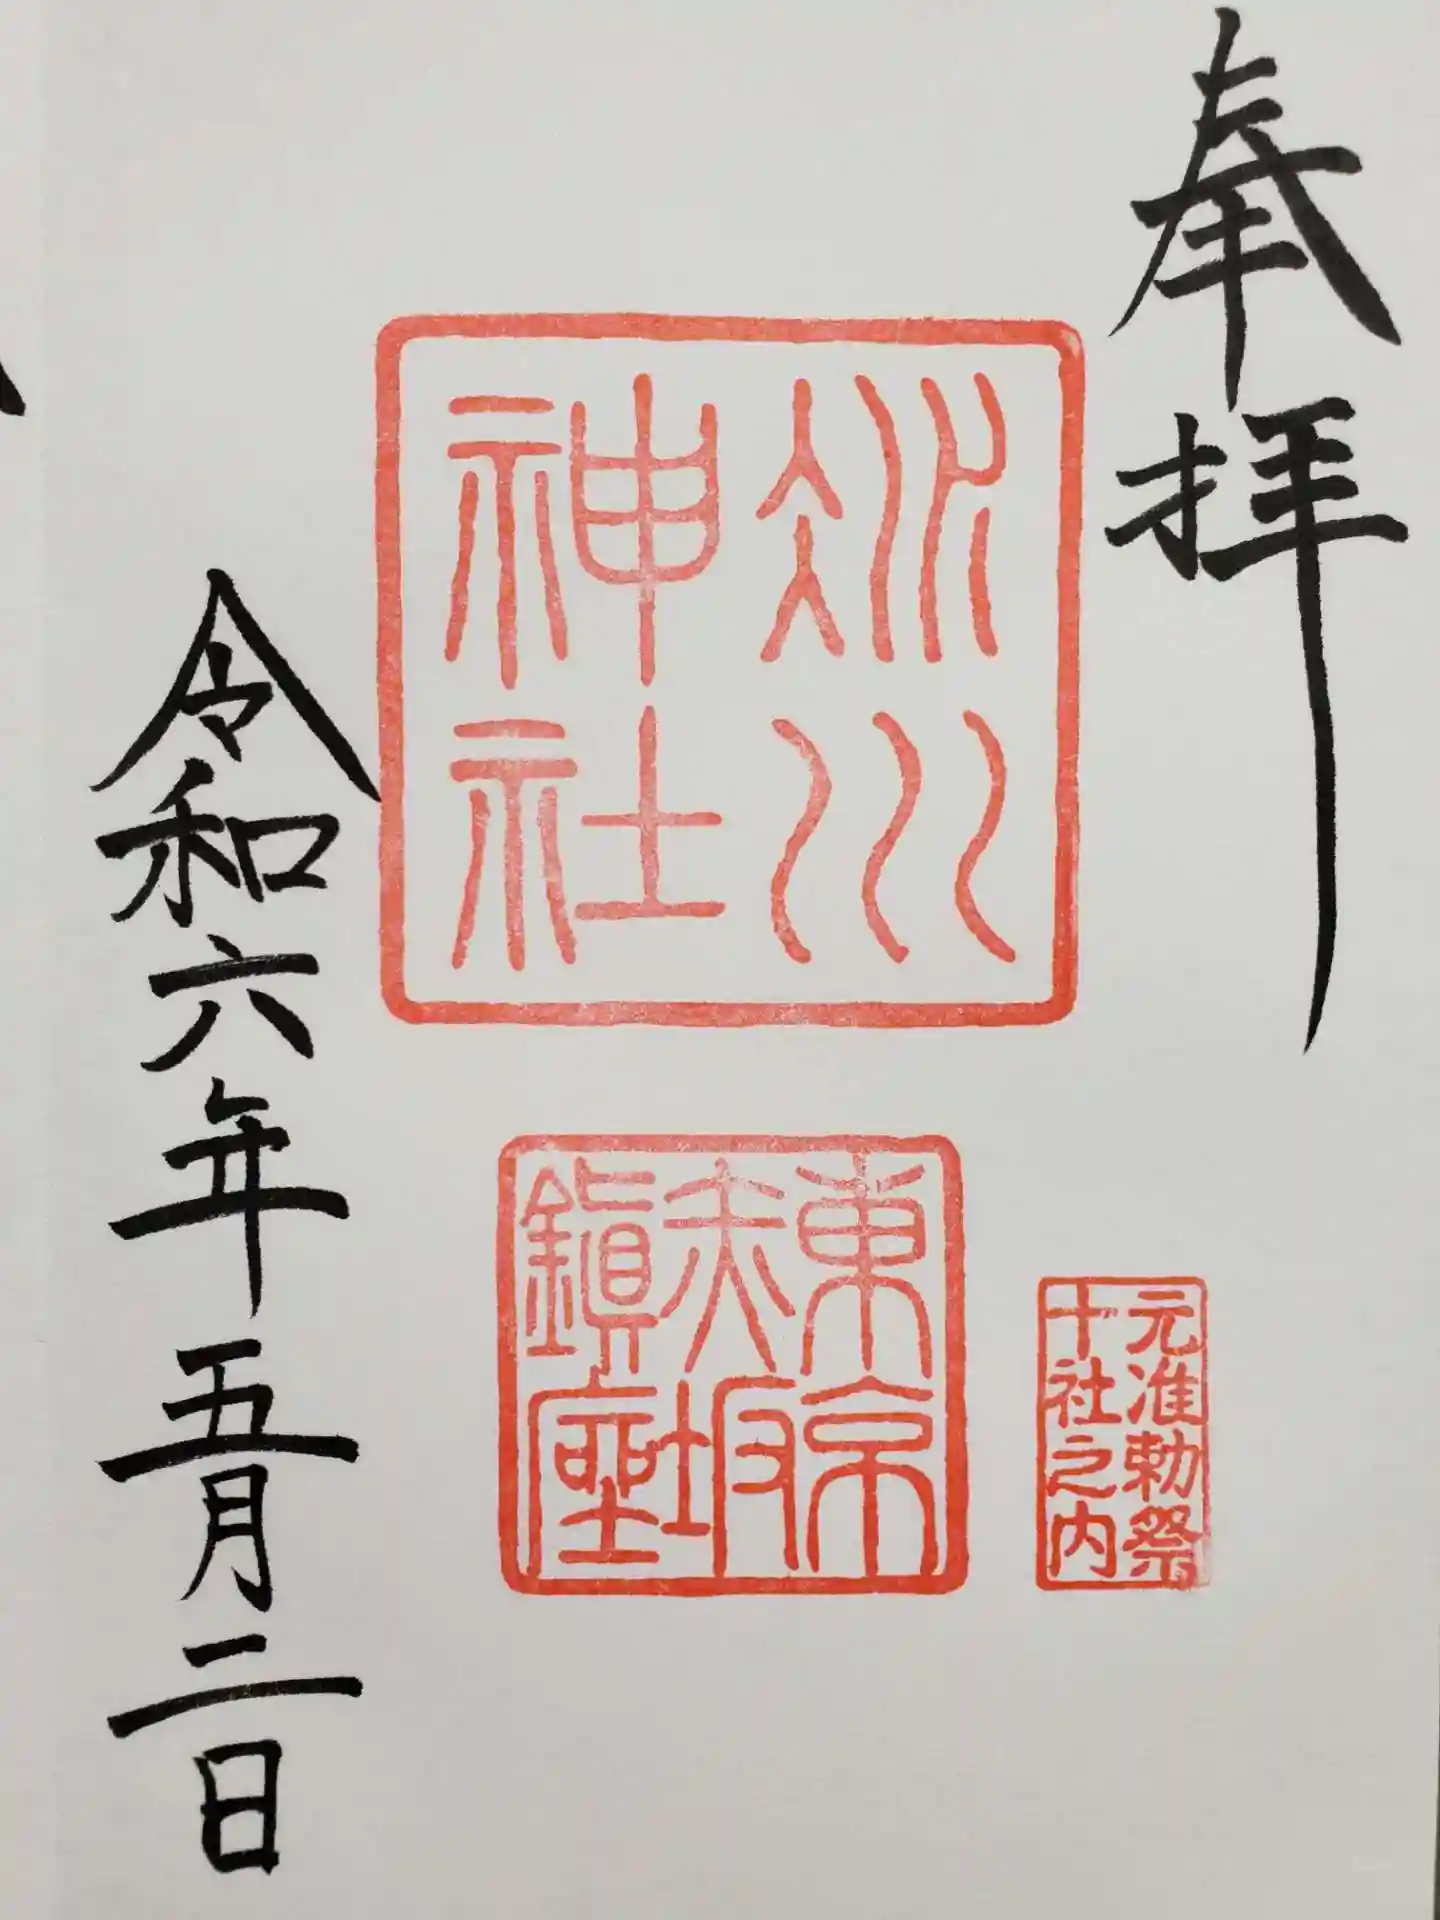 奉拝
冰川
神社
東京
赤坂
鎮座
元准勅祭
十社之内
令和六年五月二日